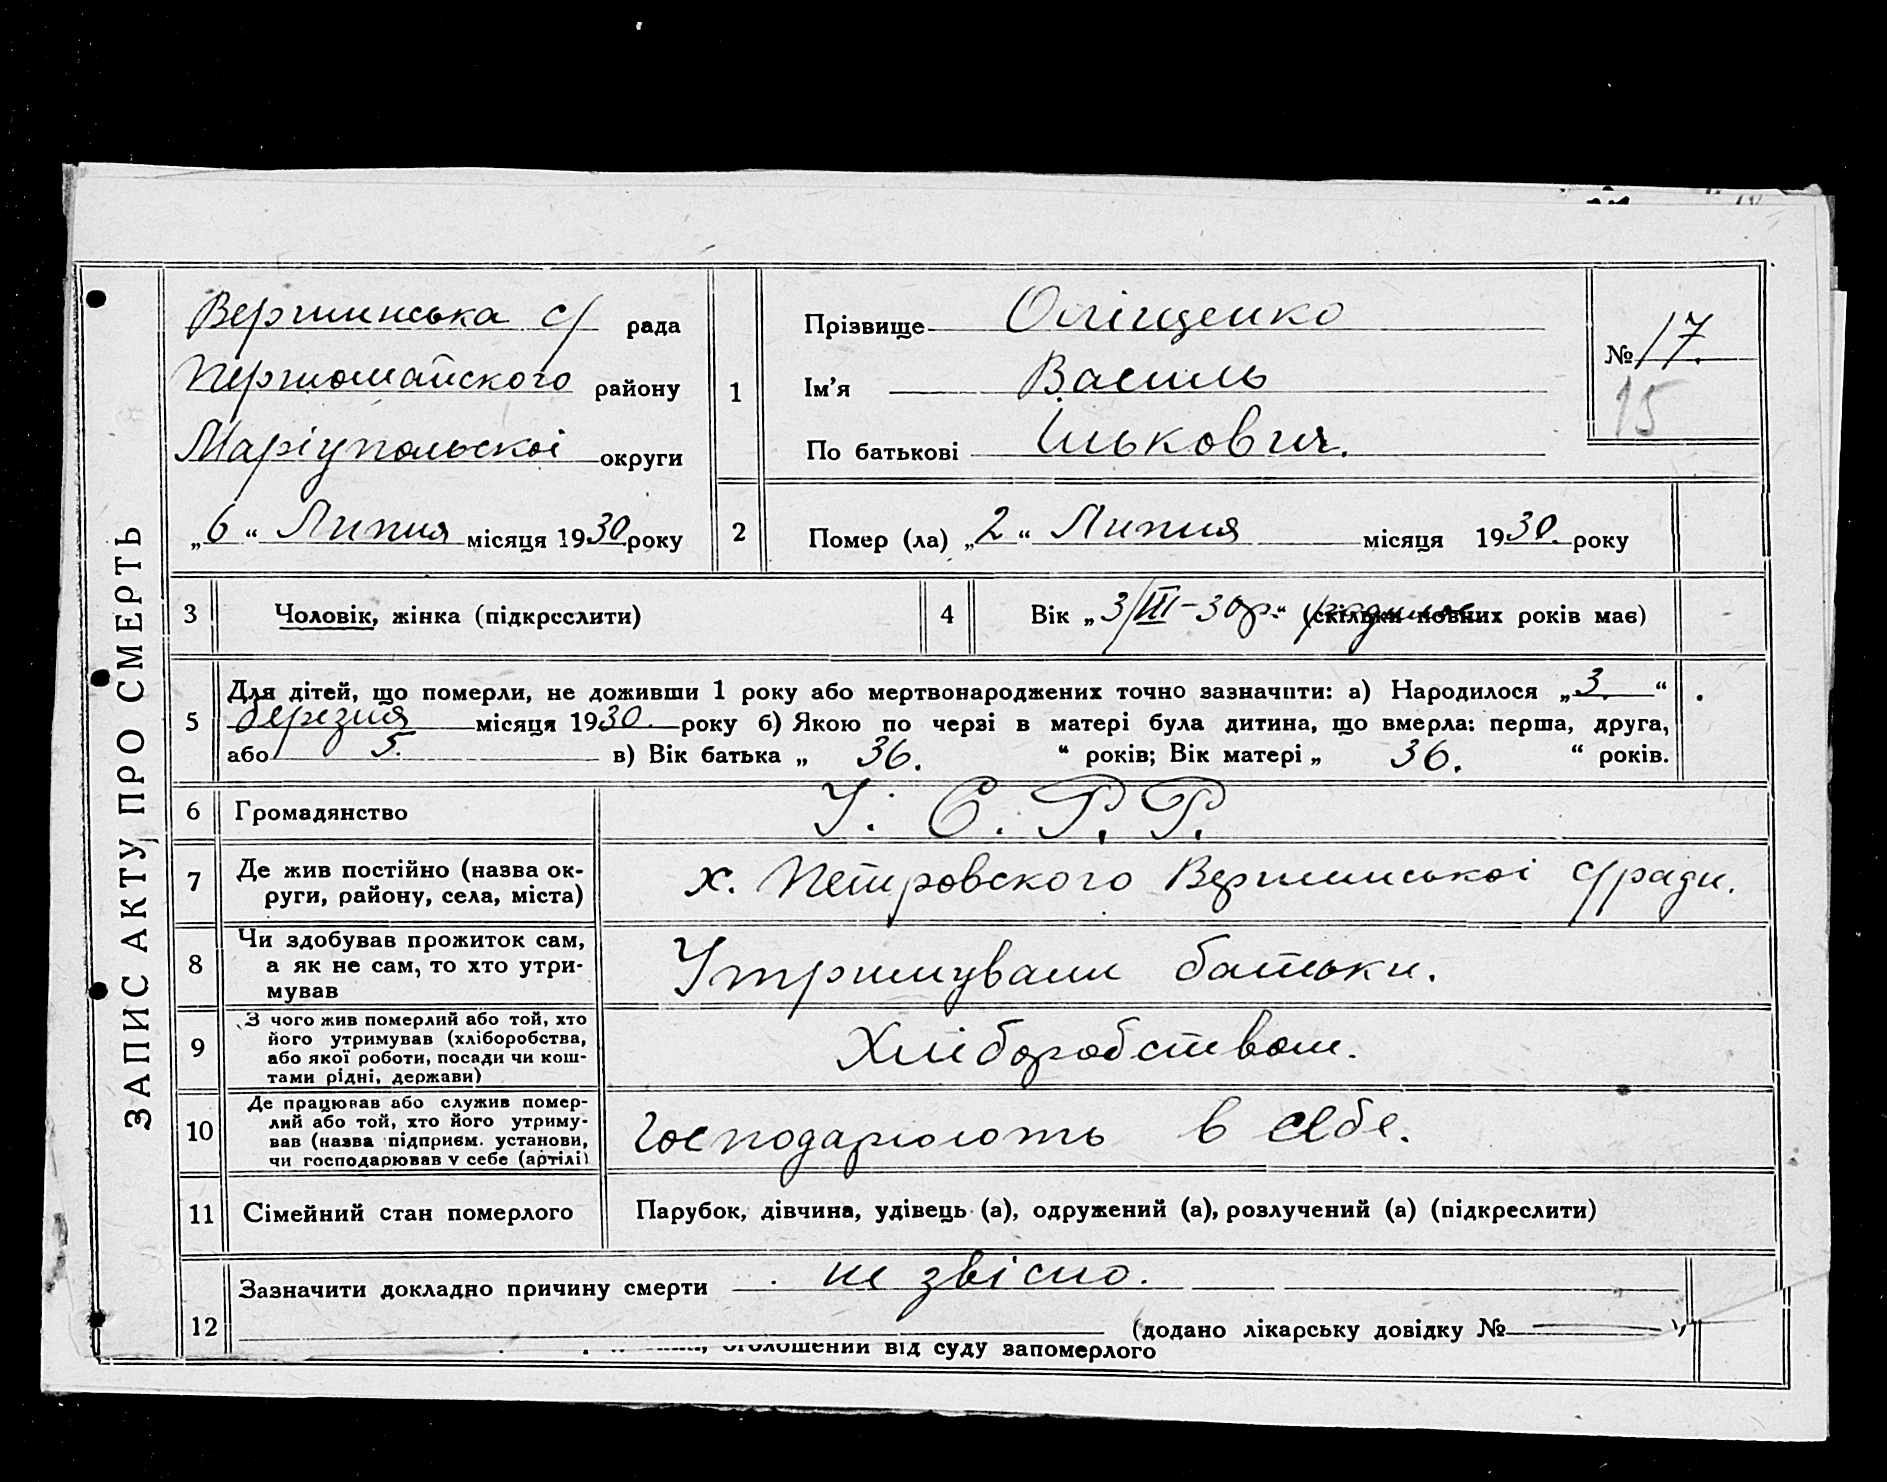 ЗАПИС АКТУ ПРО СМЕРТЬ
Вершинська с/ рада
Першомайского району
Маріупольскоі округи
„6“ Липня місяця 1930 року
1
Прізвище Оліщенко
Ім’я Василь
По батькові Ількович.
№ 17.
15
2
Помер (ла) „2“ Липня місяця 1930. року
3
Чоловік, жінка (підкреслити)
4
Вік „3/III-30р.“ родився (скільки повних років має)
5
Для дітей, що померли, не доживши 1 року або мертвонароджених точно зазначити: а) Народилося „3.“
березня місяця 1930. року б) Якою по черзі в матері була дитина, що вмерла: перша, друга,
або 5. в) Вік батька „ 36. “ років; Вік матері „ 36. “ років.
6
Громадянство
У. С. Р. Р.
7
Де жив постійно (назва ок-
руги, району, села, міста)
х. Петровского Вершинськоі с/ради.
8
Чи здобував прожиток сам,
а як не сам, то хто утри-
мував
Утримували батьки.
9
З чого жив померлий або той, хто
його утримував (хліборобства,
або якої роботи, посади чи кош-
тами рідні, держави)
Хліборобством.
10
Де працював або служив помер-
лий або той, хто його утриму-
вав (назва підприєм. установи,
чи господарював у себе (артілі)
Господарюють в себе.
11
Сімейний стан померлого
Парубок, дівчина, удівець (а), одружений (а), розлучений (а) (підкреслити)
12
Зазначити докладно причину смерти не звісно.
(додано лікарську довідку № —)
оголошений від суду запомерлого